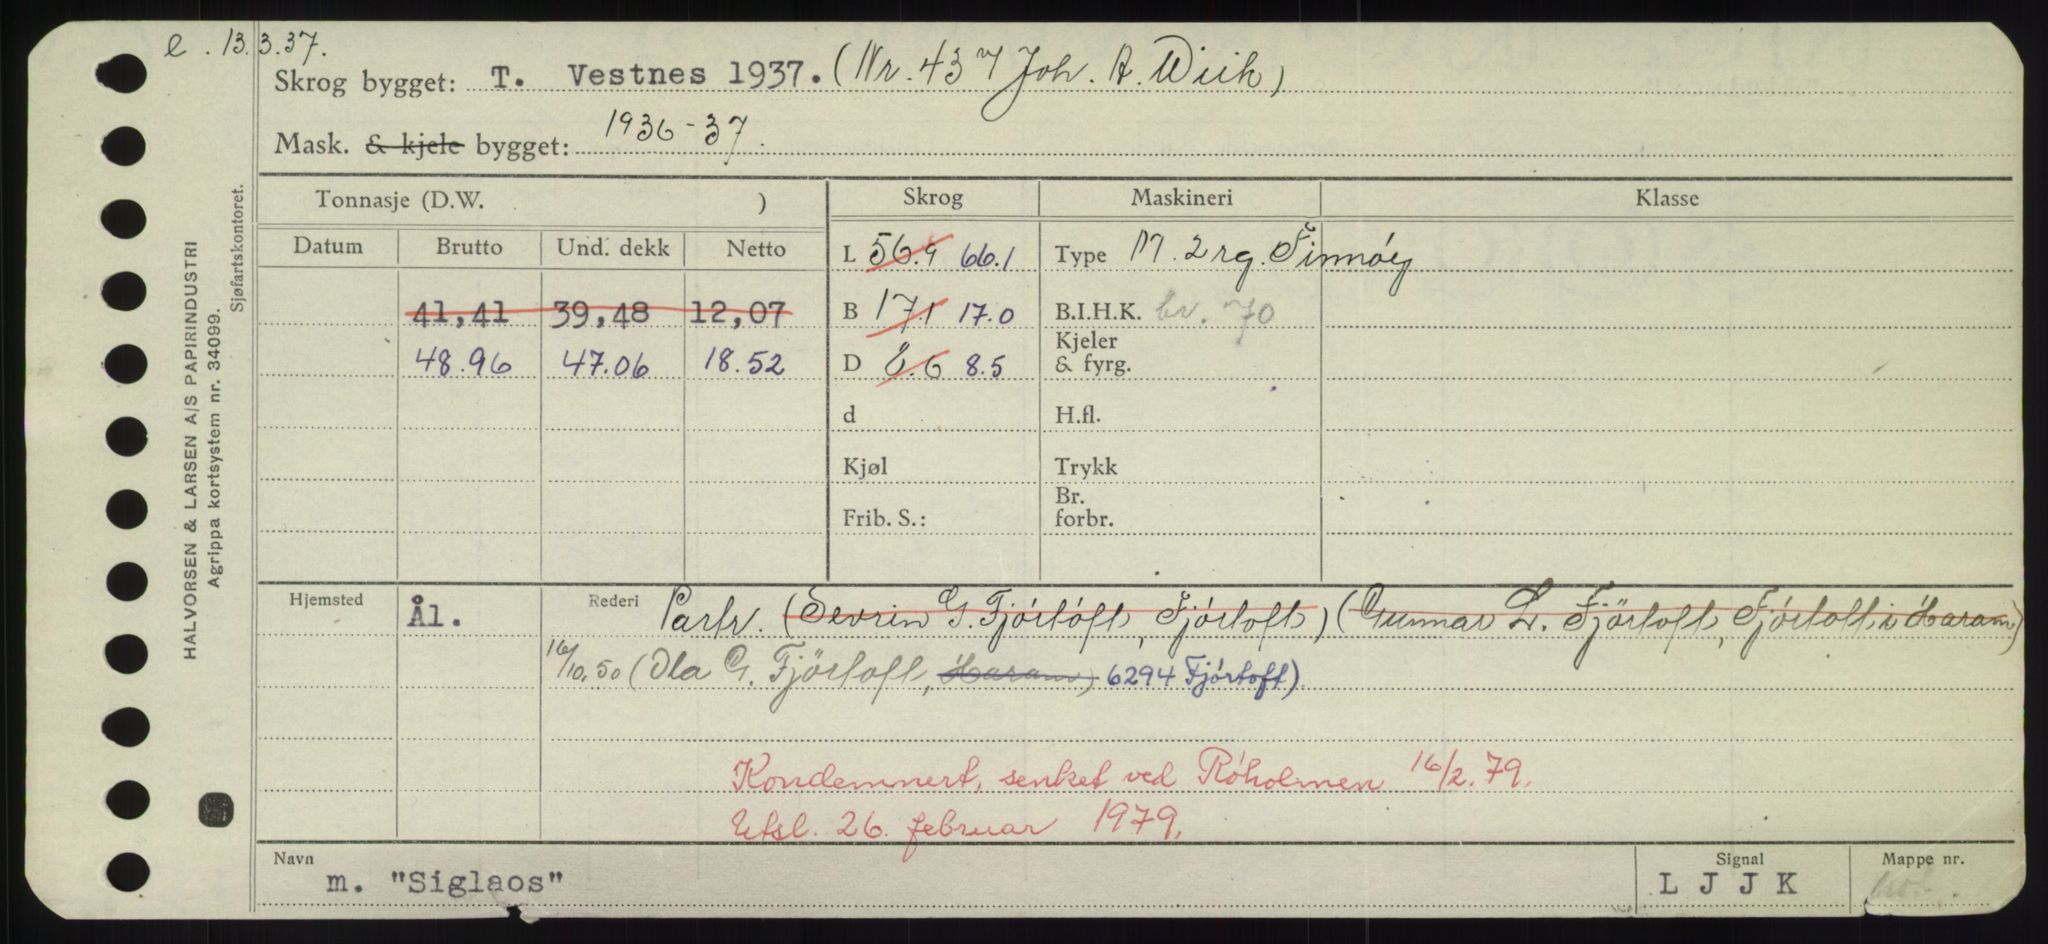 e. 13.3.37.
Skrog bygget: T. Vestnes 1937. (Nr. 43 Joh. A. Wiik)
Mask. & kjele bygget: 1936-37.
Tonnasje (D.W. ) Skrog Maskineri Klasse
Datum Brutto Und. dekk Netto
L 56.9 66.1 Type M. 2 rg. Finnöy
41,41 39,48 12,07 B 17.1 17.0 B.I.H.K. br. 70
48.96 47.06 18.52 D 8.6 8.5 Kjeler & fyrg.
d H.fl.
Kjøl Trykk
Frib. S.: Br. forbr.
Hjemsted Ål. Rederi Partr. (Sevrin G. Fjörtoft, Fjörtoft) (Gunnar L. Fjörtoft, Fjörtoft i Haram)
16/10.50 (Ola G. Fjörtoft, Haram) 6294 Fjörtoft)
Kondemnert, senket ved Röholmen 16/2.79.
Utsl. 26. februar 1979.
Navn Signal Mappe nr.
m. "Siglaos" L J J K
HALVORSEN & LARSEN A/S PAPIRINDUSTRI
Agrippa kortsystem nr. 34099.
Sjøfartskontoret.